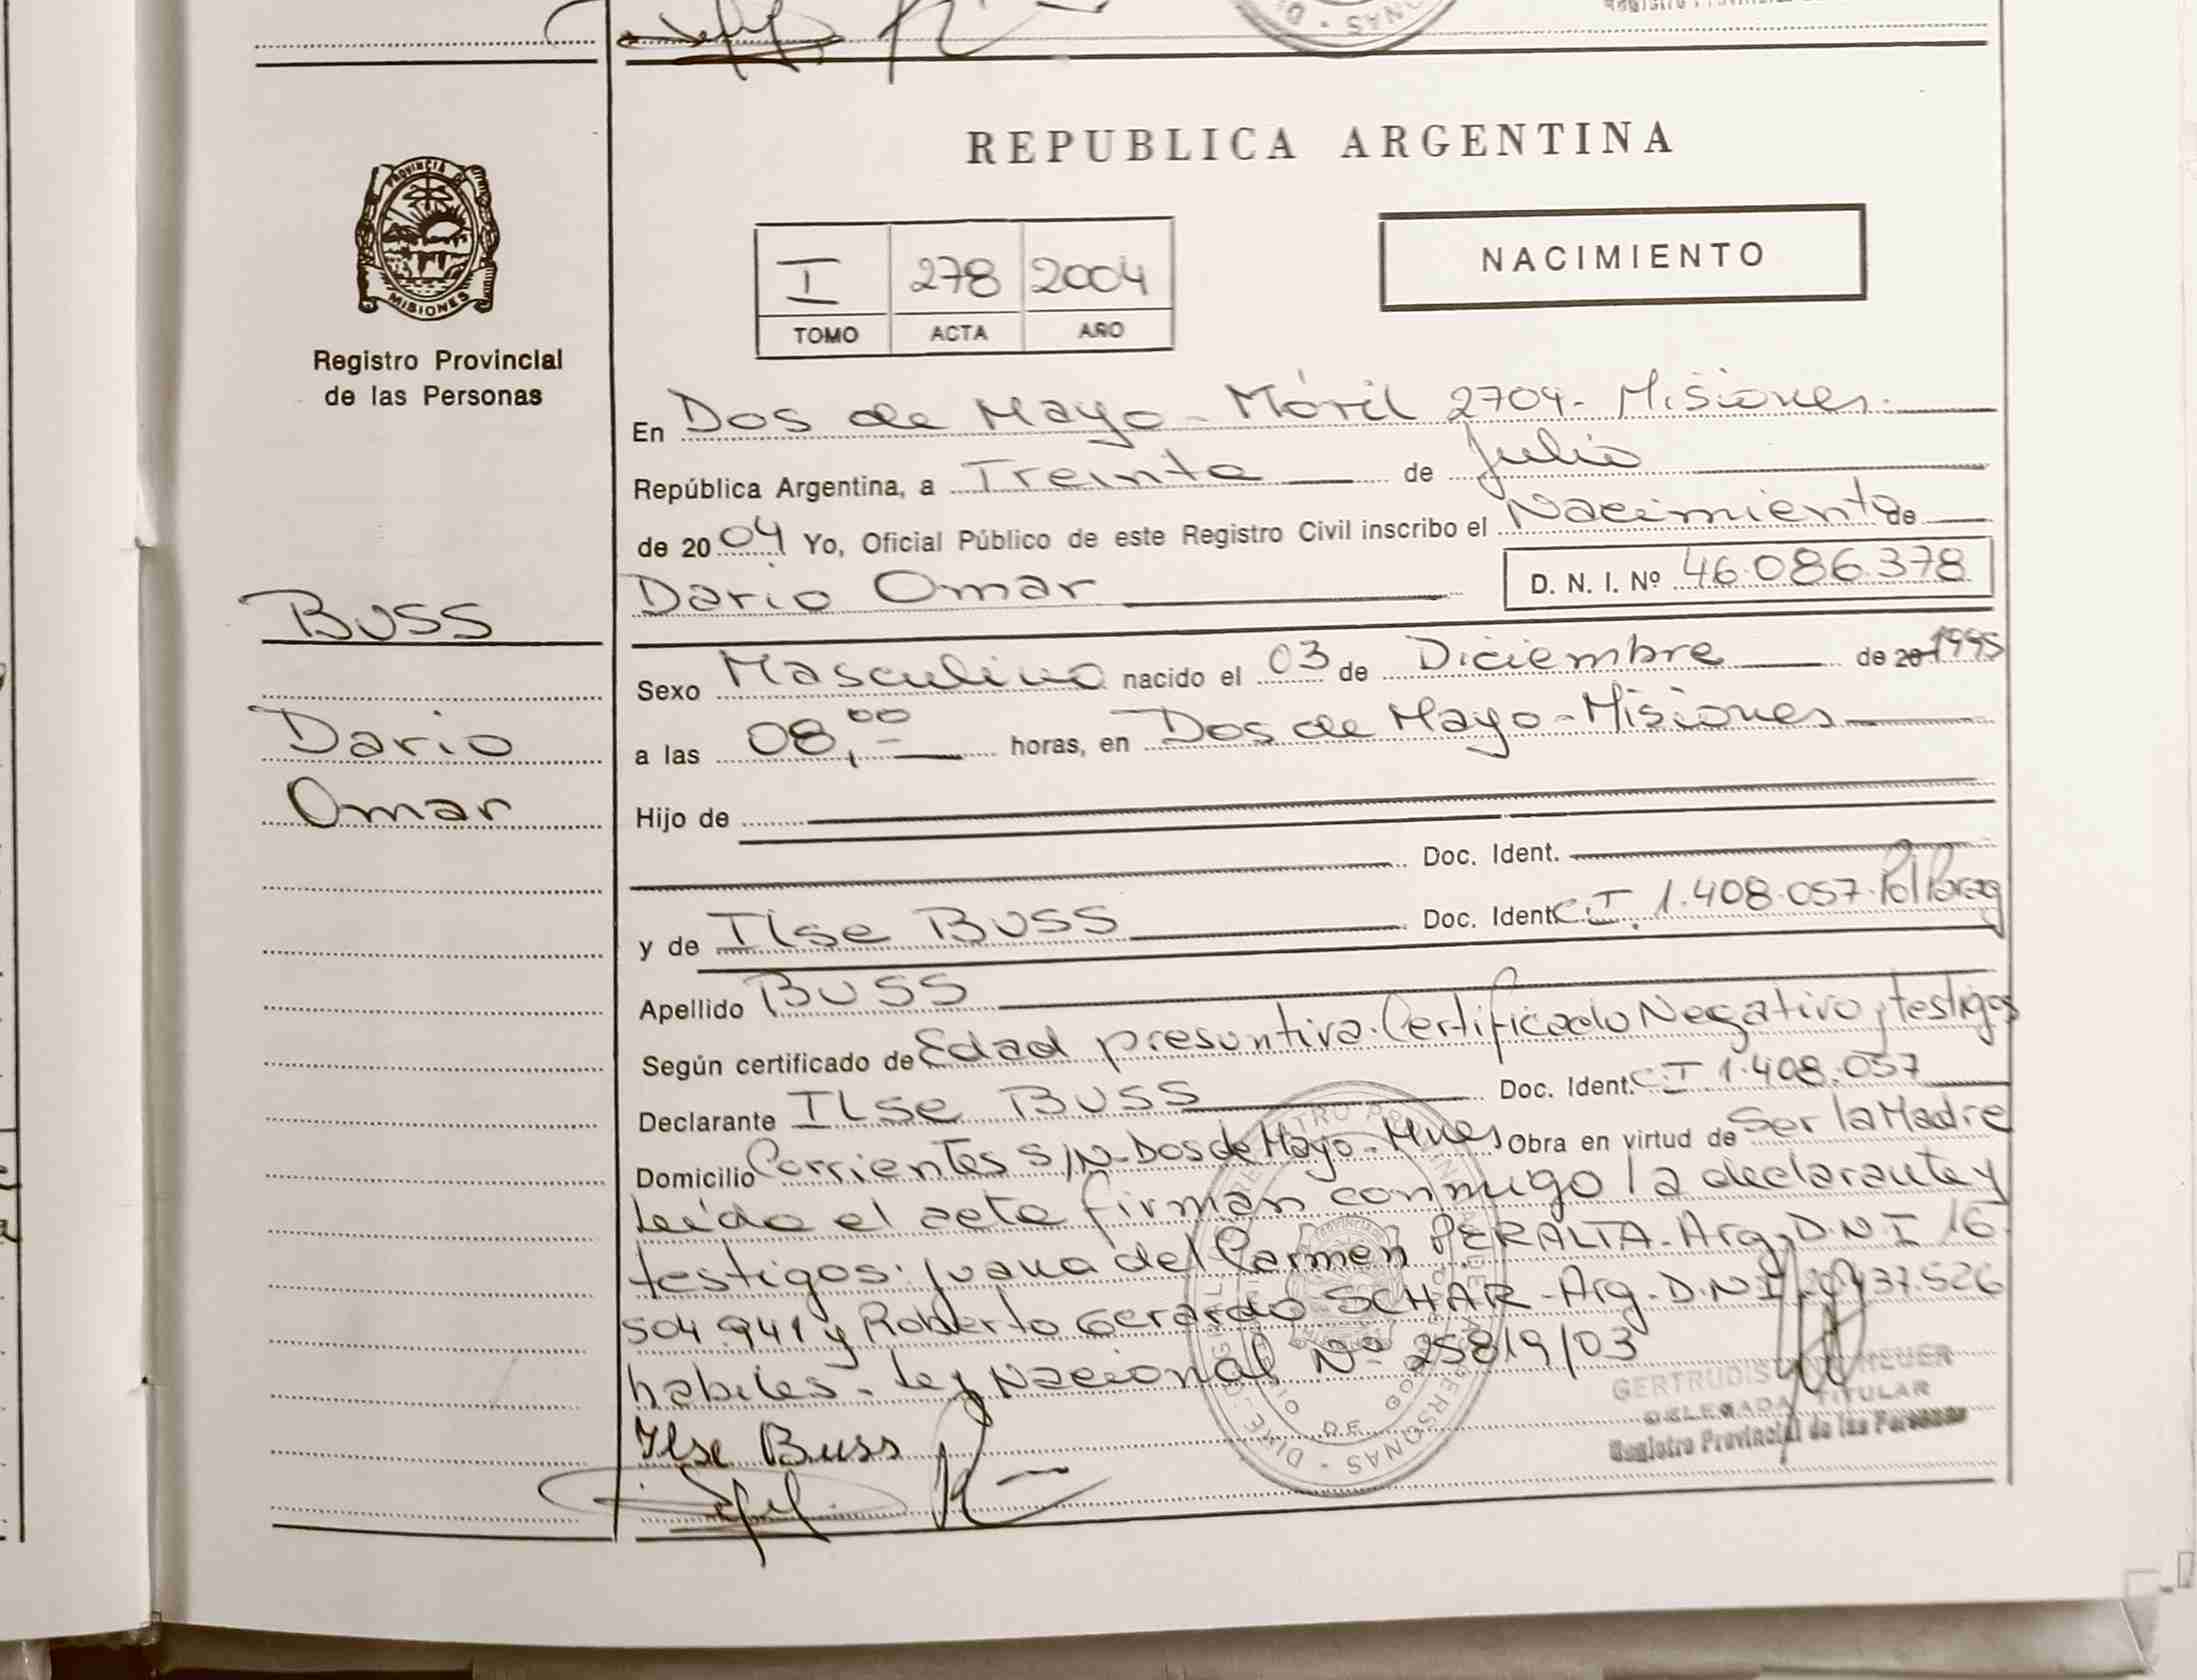 REPUBLICA ARGENTINA
PROVINCIA DE
MISIONES
Registro Provincial
de las Personas
I 278 2004
TOMO ACTA AÑO
NACIMIENTO
En Dos de Mayo - Móvil 2704 - Misiones.
República Argentina, a Treinta de Julio
de 2004 Yo, Oficial Público de este Registro Civil inscribo el Nacimiento de
Dario Omar D. N. I. Nº 46.086.378
BUSS
Dario
Omar
Sexo Masculino nacido el 03 de Diciembre de 20 1995
a las 08,00 horas, en Dos de Mayo - Misiones
Hijo de
Doc. Ident.
y de Ilse BUSS Doc. Ident. C.I. 1.408.057. Pol Parag
Apellido BUSS
Según certificado de Edad presuntiva. Certificado Negativo y testigos
Declarante Ilse BUSS Doc. Ident. C.I. 1.408.057
Domicilio Corrientes S/N - Dos de Mayo - Mnes Obra en virtud de Ser la Madre
Leída el acta firman conmigo la declarante y
testigos: Juana del Carmen PERALTA - Arg. D.N.I 16.
504 941 y Roberto Gerardo SCHAR - Arg. D.N.I 437.526
habiles. Ley Nacional Nº 25819/03
Ilse Buss
GERTRUDIS HEUER
DELEGADA TITULAR
Registro Provincial de las Personas